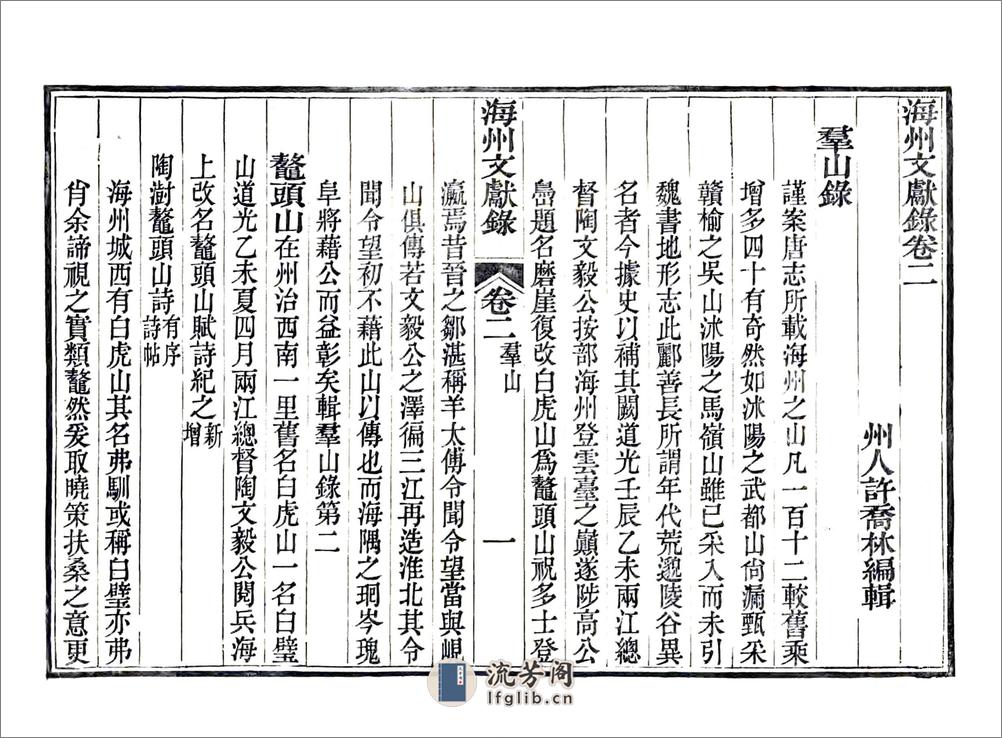 海州文獻錄卷二
州人許喬林編輯
羣山錄
謹案唐志所載海州之山凡一百十二較舊乘
增多四十有奇然如沭陽之武都山尙漏甄采
贛榆之吳山沭陽之馬嶺山雖已采入而未引
魏書地形志此酈善長所謂年代荒邈陵谷異
名者今據史以補其闕道光壬辰乙未兩江總
督陶文毅公按部海州登雲臺之巔遂陟高公
嶋題名磨崖復改白虎山爲鼇頭山祝多士登
海州文獻錄
卷二
羣山
一
瀛焉昔晉之鄒湛稱羊太傅令聞令望當與峴
山俱傳若文毅公之澤徧三江再造淮北其令
聞令望初不藉此山以傳也而海隅之珂岑瑰
阜將藉公而益彰矣輯羣山錄第二
鼇頭山在州治西南一里舊名白虎山一名白璧
山道光乙未夏四月兩江總督陶文毅公閱兵海
上改名鼇頭山賦詩紀之新增
陶澍鼇頭山詩有序詩帖
海州城西有白虎山其名弗馴或稱白璧亦弗
肖余諦視之實類鼇然爰取曉策扶桑之意更
流芳阁
lfglib.cn